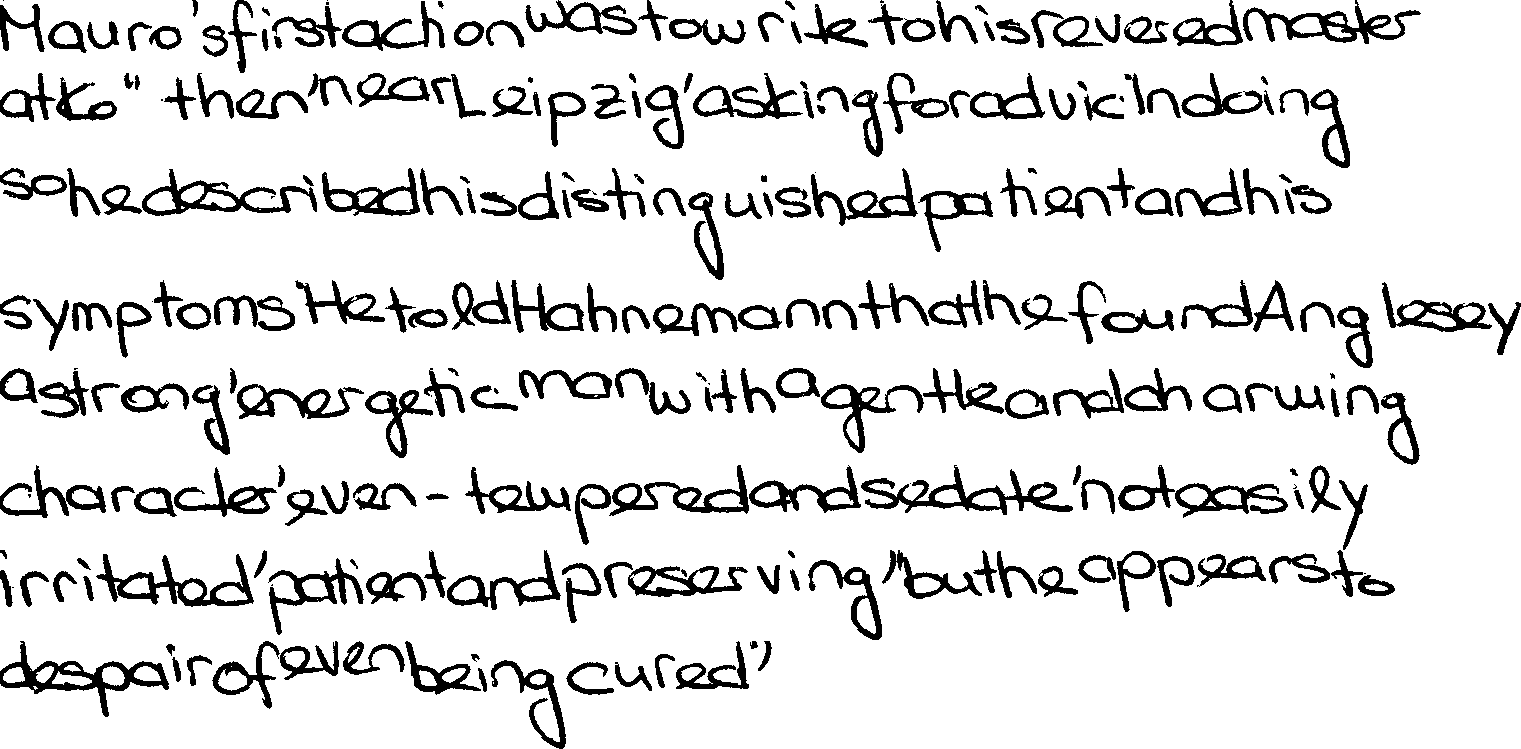 Mauro's first action was to write to his revered master
at Ko" then, near Leipzig, asking for advic. In doing
so he described his distinguished patient and his
symptoms. He told Hahnemann that he found Anglesey
a strong, energetic man with a gentle and charming
character, even-tempered and sedate, not easily
irritated, patient and preserving, "but he appears to
despair of even being cured."